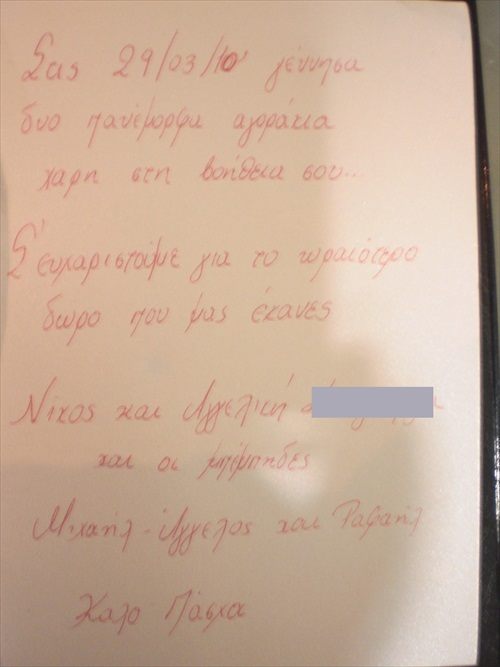 Στις 29/03/10 γέννησα
δυο πανέμορφα αγοράκια
χαρη στη βοήθεια σου...
Σ' ευχαριστούμε για το ωραιότερο
δώρο που μας έκανες
Νίκος και Αγγελική
και οι μπέμπηδες
Μιχαήλ-Άγγελος και Ραφαήλ
Καλο Πάσχα